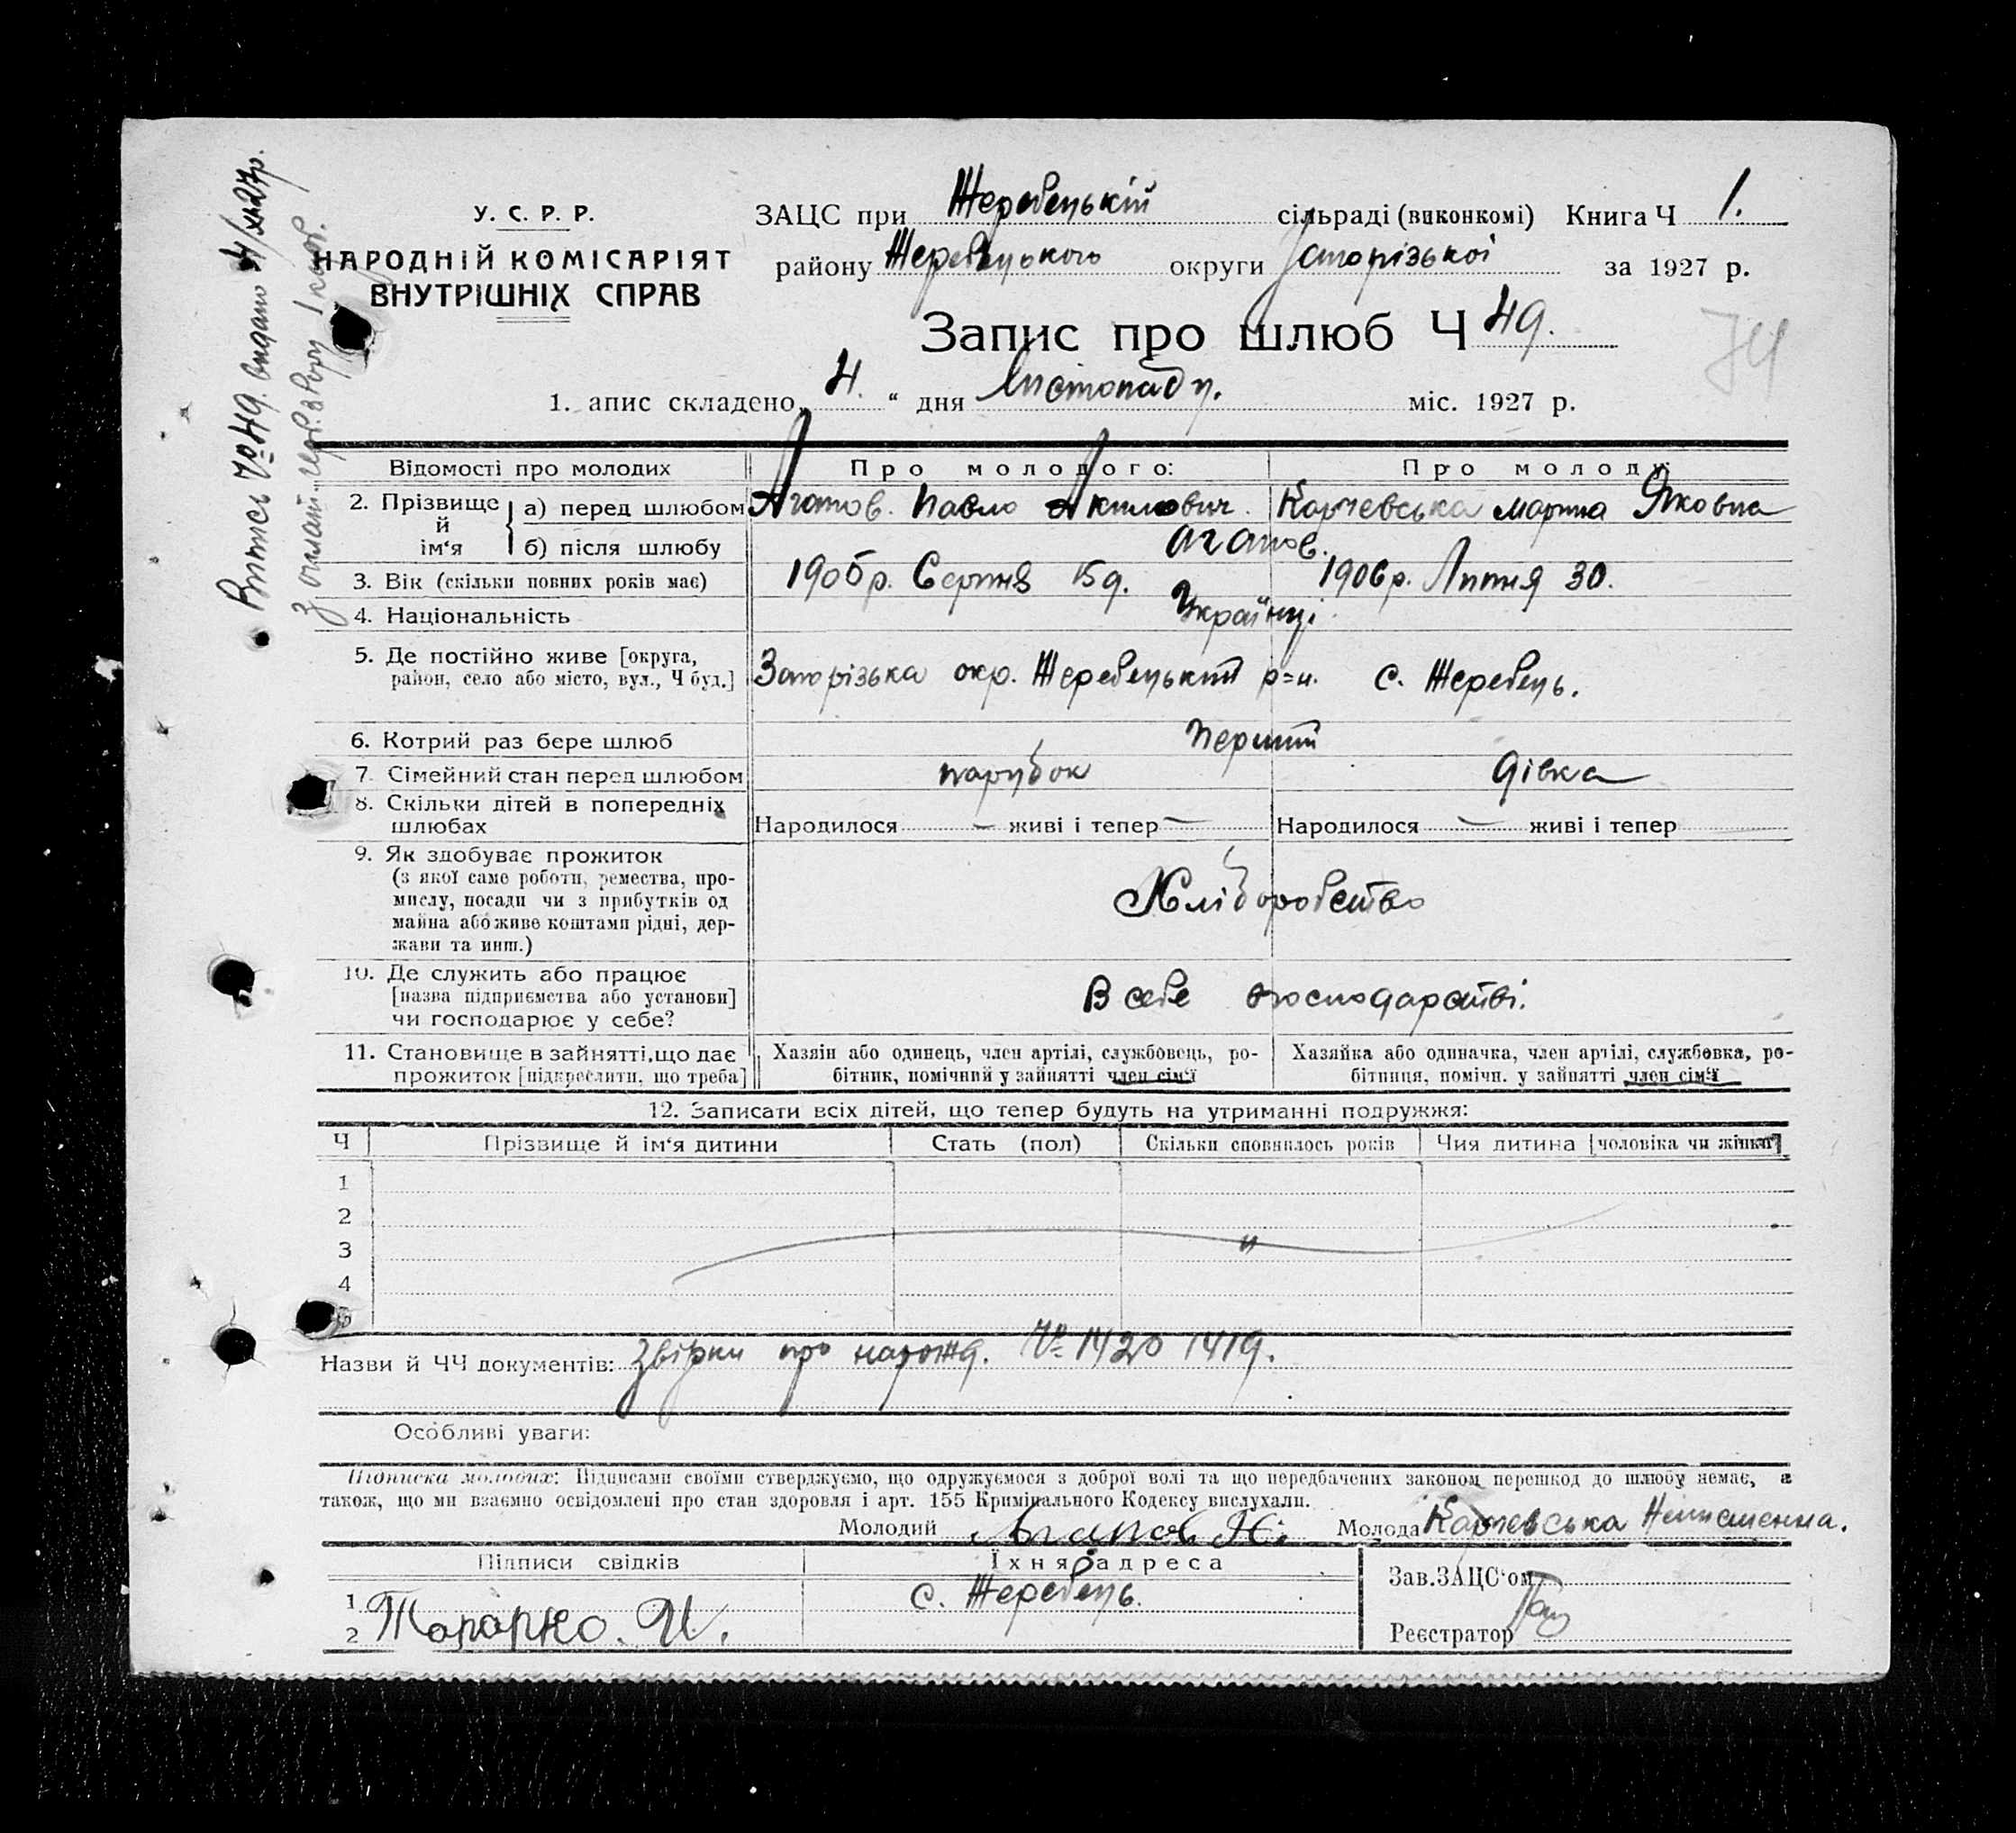 У. С. Р. Р.
НАРОДНІЙ КОМІСАРІЯТ
ВНУТРІШНІХ СПРАВ
ЗАЦС при Жеребецькій сільраді (виконкомі) Книга Ч 1.
району Жеребецького округи Запорізької за 1927 р.
Запис про шлюб Ч 49.
74
1. апис складено „ 4. “ дня Листопаду. міс. 1927 р.
Випись № 49. видано 4/XI 27р.
Відомості про молодих
Про молодого:
Про молоду:
2. Прізвище й ім‘я
а) перед шлюбом Агапов. Павло Акимович. Карчевська Марина Яковна
б) після шлюбу Агапов.
3. Вік (скільки повних років має) 1905р. Серпня 15д. 1906р. Липня 30.
4. Національність Українці
5. Де постійно живе [округа, район, село або місто, вул., Ч буд.] Запорізька окр. Жеребецький р=н. с. Жеребець.
6. Котрий раз бере шлюб Перший
7. Сімейний стан перед шлюбом парубок дівка
8. Скільки дітей в попередніх шлюбах Народилося — живі і тепер — Народилося — живі і тепер
9. Як здобуває прожиток
(з якої саме роботи, ремества, про-
мислу, посади чи з прибутків од
майна або живе коштами рідні, дер-
жави та инш.)
Хліборобство
10. Де служить або працює
[назва підприємства або установи]
чи господарює у себе?
В себе в господарстві.
11. Становище в зайнятті, що дає
прожиток [підкреслити, що треба]
Хазяін або одинець, член артілі, службовець, ро-
бітник, помічний у зайнятті член сім‘ї
Хазяйка або одиначка, член артілі, службовка, ро-
бітниця, помічн. у зайнятті член сім‘ї
12. Записати всіх дітей, що тепер будуть на утриманні подружжя:
Ч Прізвище й ім‘я дитини Стать (пол) Скільки сповнилось років Чия дитина [чоловіка чи жінки]
1
2
3 "
4
5
Назви й ЧЧ документів: Звірки про нарожд. № 1420 1419.
Особливі уваги:
Підписка молодих: Підписами своїми стверджуємо, що одружуємося з доброї волі та що передбачених законом перешкод до шлюбу немає, а
також, що ми взаємно освідомлені про стан здоровля і арт. 155 Кримінального Кодексу вислухали.
Молодий Агапов Молода Карчевська Неписменна.
Підписи свідків Їхня адреса
1 с. Жеребець.
2 Топарко. И.
Зав.ЗАЦС‘ом
Реєстратор